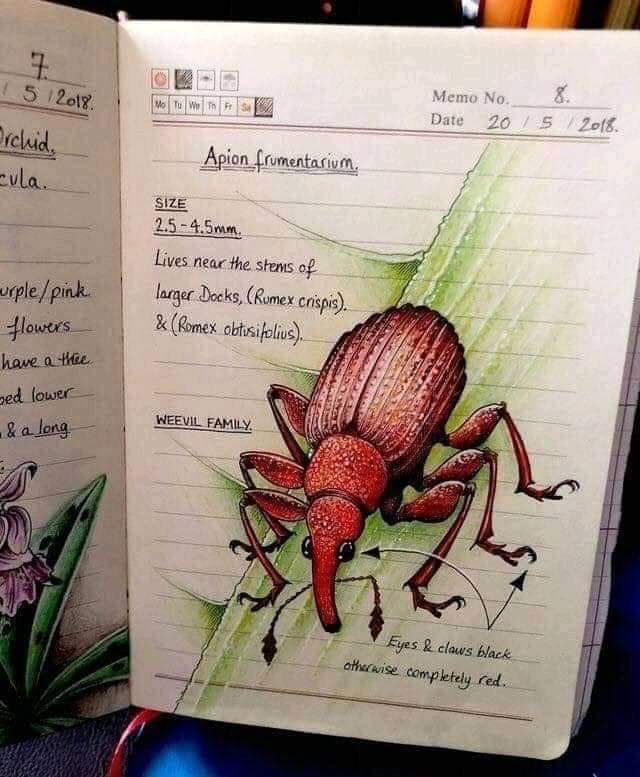 7.
/ 5 / 2018.
Orchid.
cula.
urple/pink
flowers
have a three
bed lower
& a long
Memo No. 8.
Mo Tu We Th Fr Sa
Date 20 / 5 / 2018.
Apion frumentarium.
SIZE
2.5-4.5mm.
Lives near the stems of
larger Docks, (Rumex crispis).
& (Romex obtusifolius).
WEEVIL FAMILY.
Eyes & claws black
otherwise completely red.